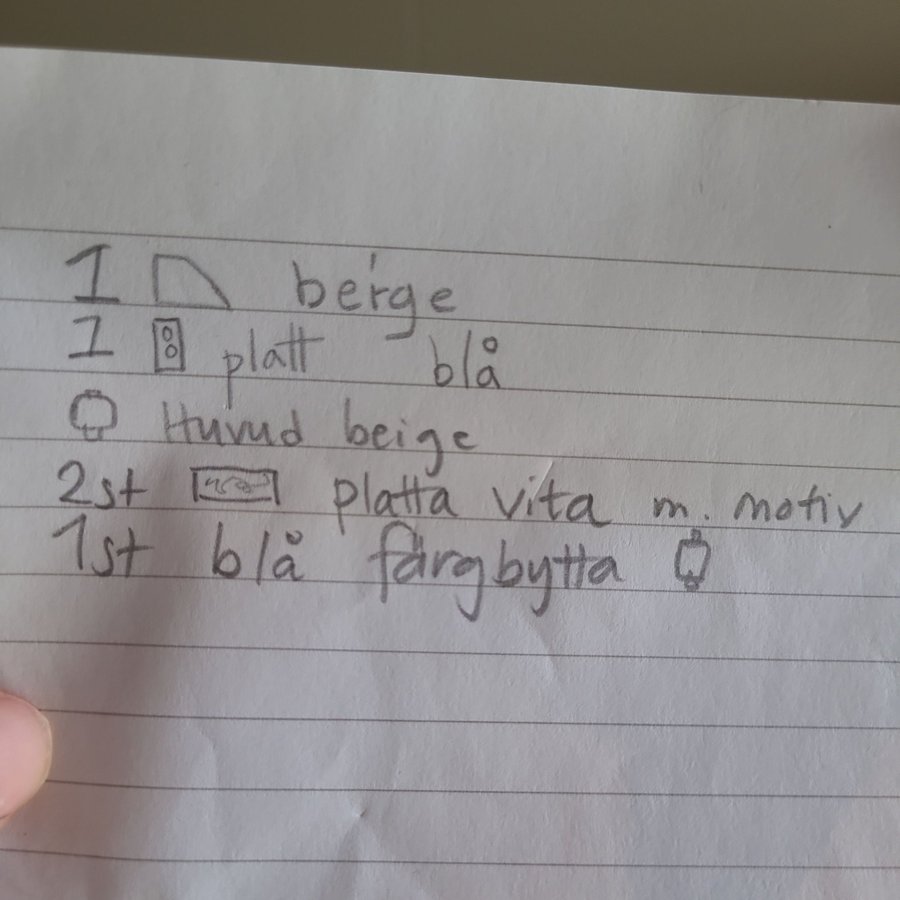 1 beige
1 platt blå
Huvud beige
2st platta vita m. motiv
1st blå färgbytta